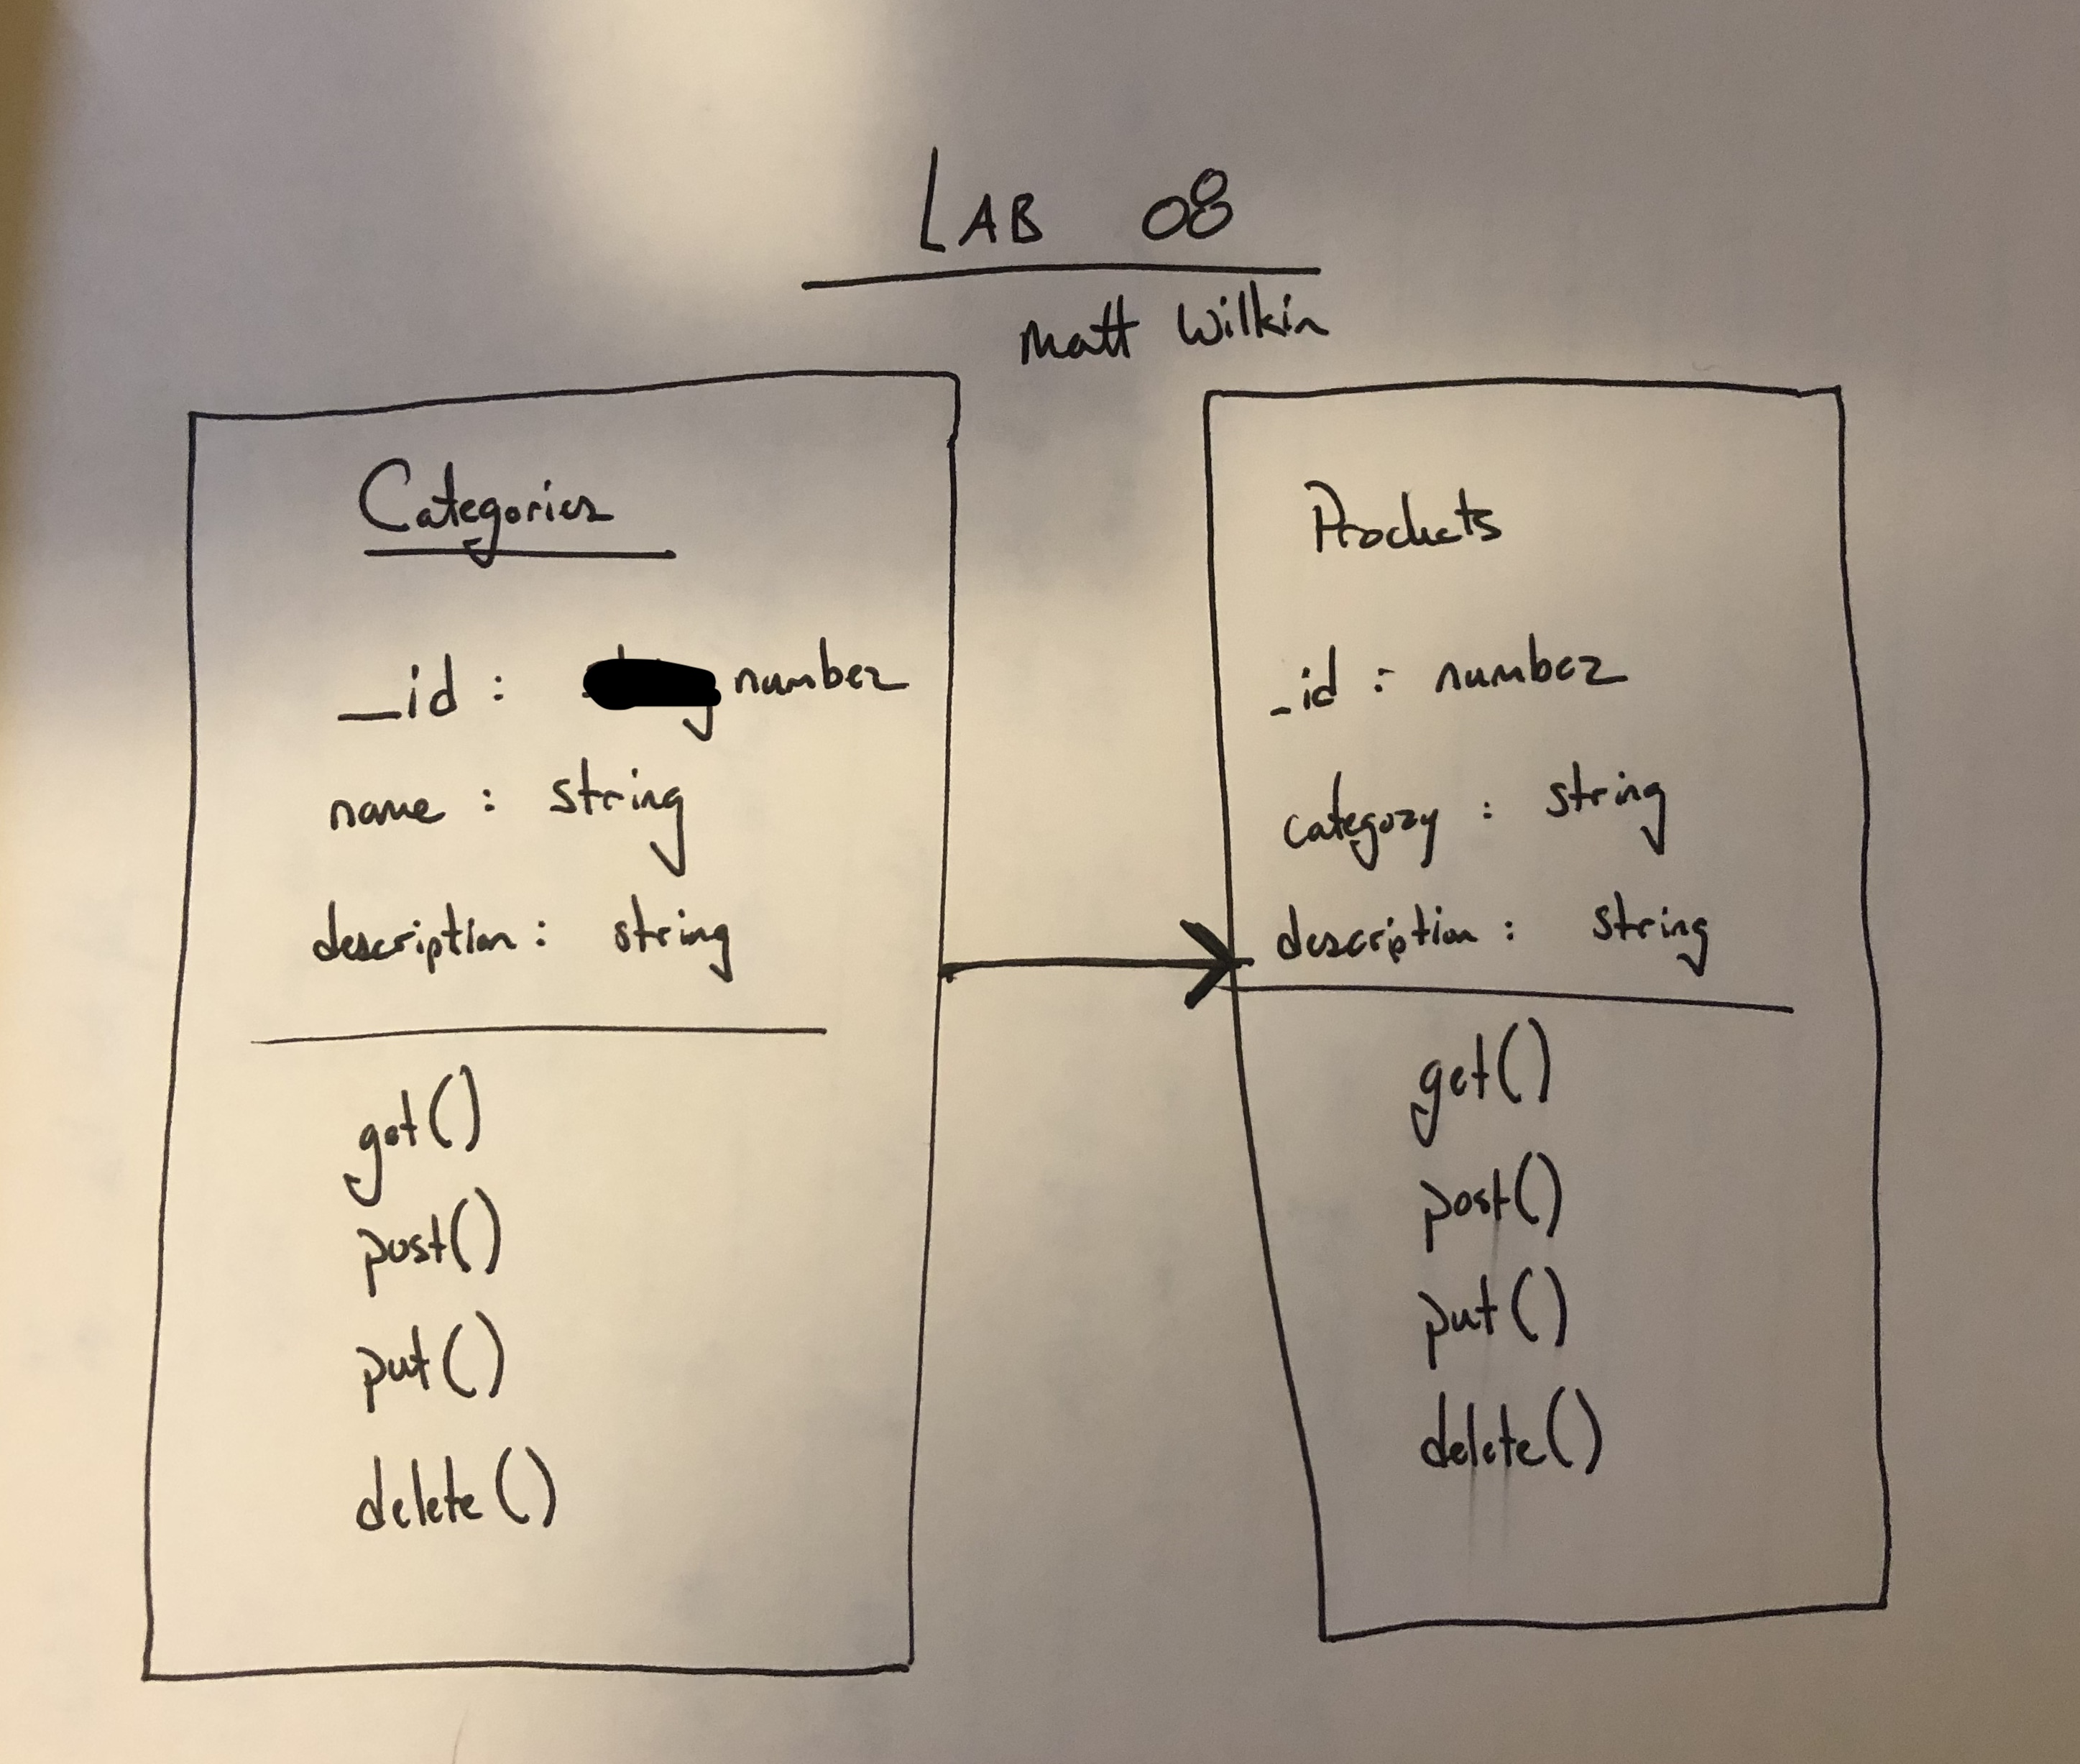 LAB 08
Matt Wilkin
Categories
_id : number
name : string
description : string
get()
post()
put()
delete()
Products
_id : number
category : string
description : string
get()
post()
put()
delete()